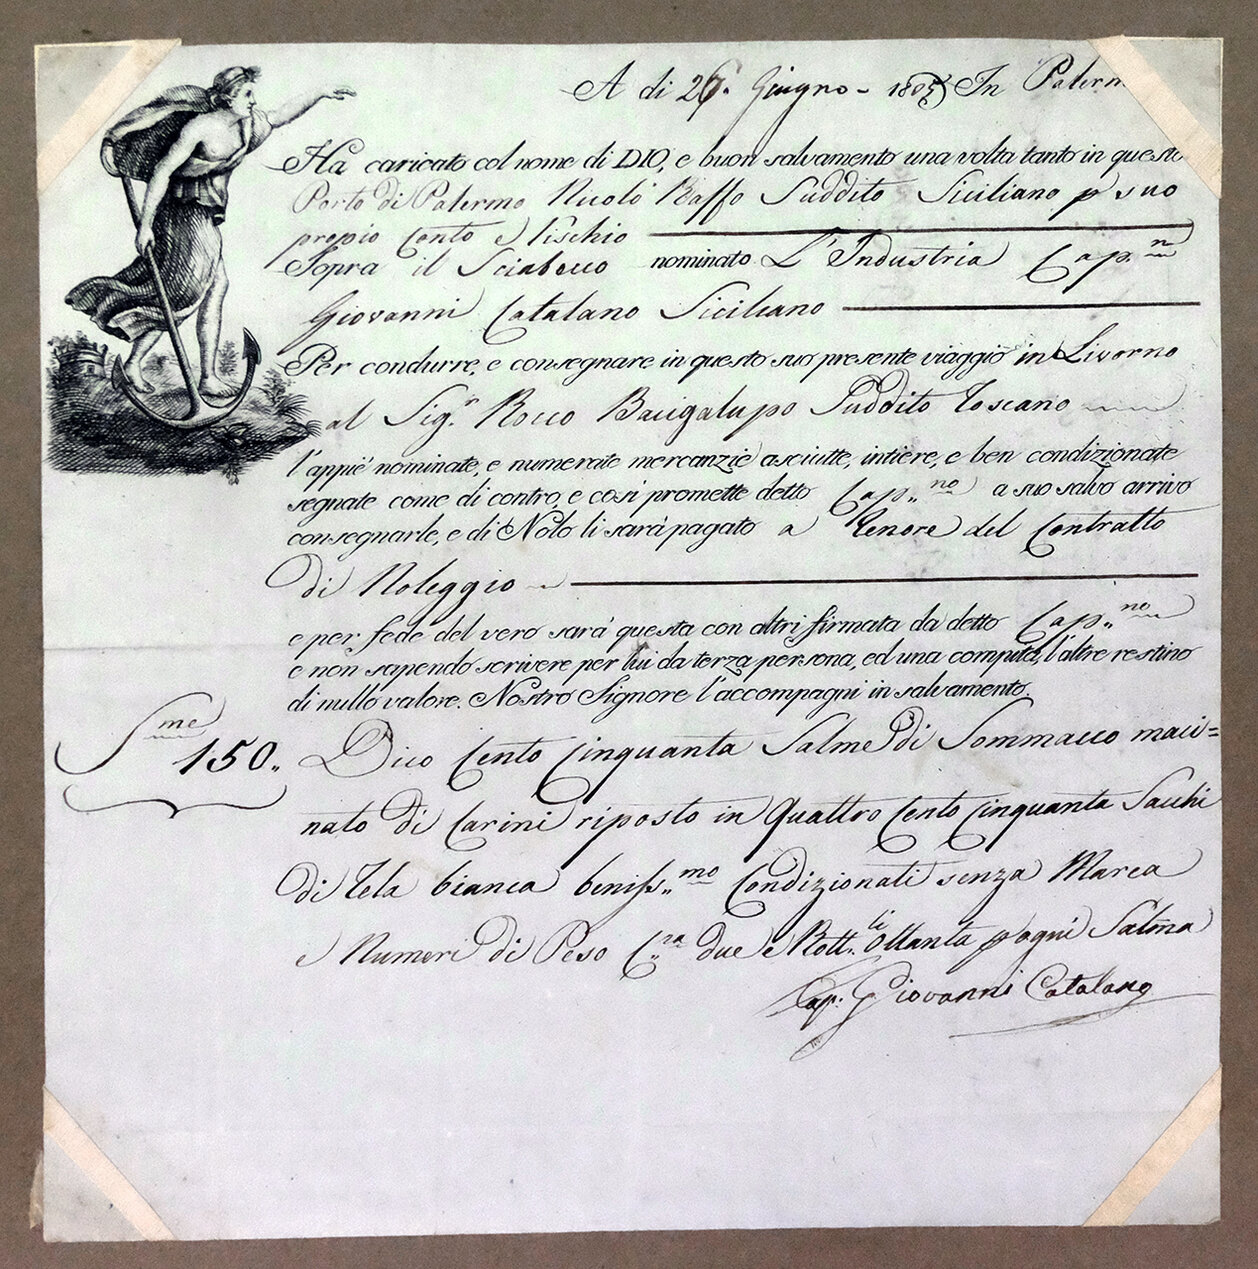 A di 26. Giugno - 1805 In Palerm
Ha caricato col nome di DIO, e buon salvamento una volta tanto in questo
Porto di Palermo Nicolò Baffo Suddito Siciliano p suo
propio Conto e Rischio
Sopra il Sciabecco nominato L'Industria Cap.n
Giovanni Catalano Siciliano
Per condurre, e consegnare in questo suo presente viaggio in Livorno
al Sig.r Rocco Bacigalupo Suddito Toscano
l'appiè nominate, e numerate mercanzie asciutte, intiere, e ben condizionate
segnate come di contro, e così promette detto Cap.no a suo salvo arrivo
consegnarle, e di Nolo li sarà pagato a Tenore del Contratto
di Noleggio
e per fede del vero sarà questa con altri firmata da detto Cap.no
e non sapendo scrivere per lui da terza persona, ed una compita, l'altre restino
di nullo valore. Nostro Signore l'accompagni in salvamento.
S.me 150. Dico Cento Cinquanta Salme di Sommacco maci=
nato di Carini riposto in Quattro Cento Cinquanta Sacchi
di Tela bianca beniss.mo Condizionati senza Marca
e Numeri di Peso C.ra due e Rott.li Ottanta p ogni Salma
Cap. Giovanni Catalano